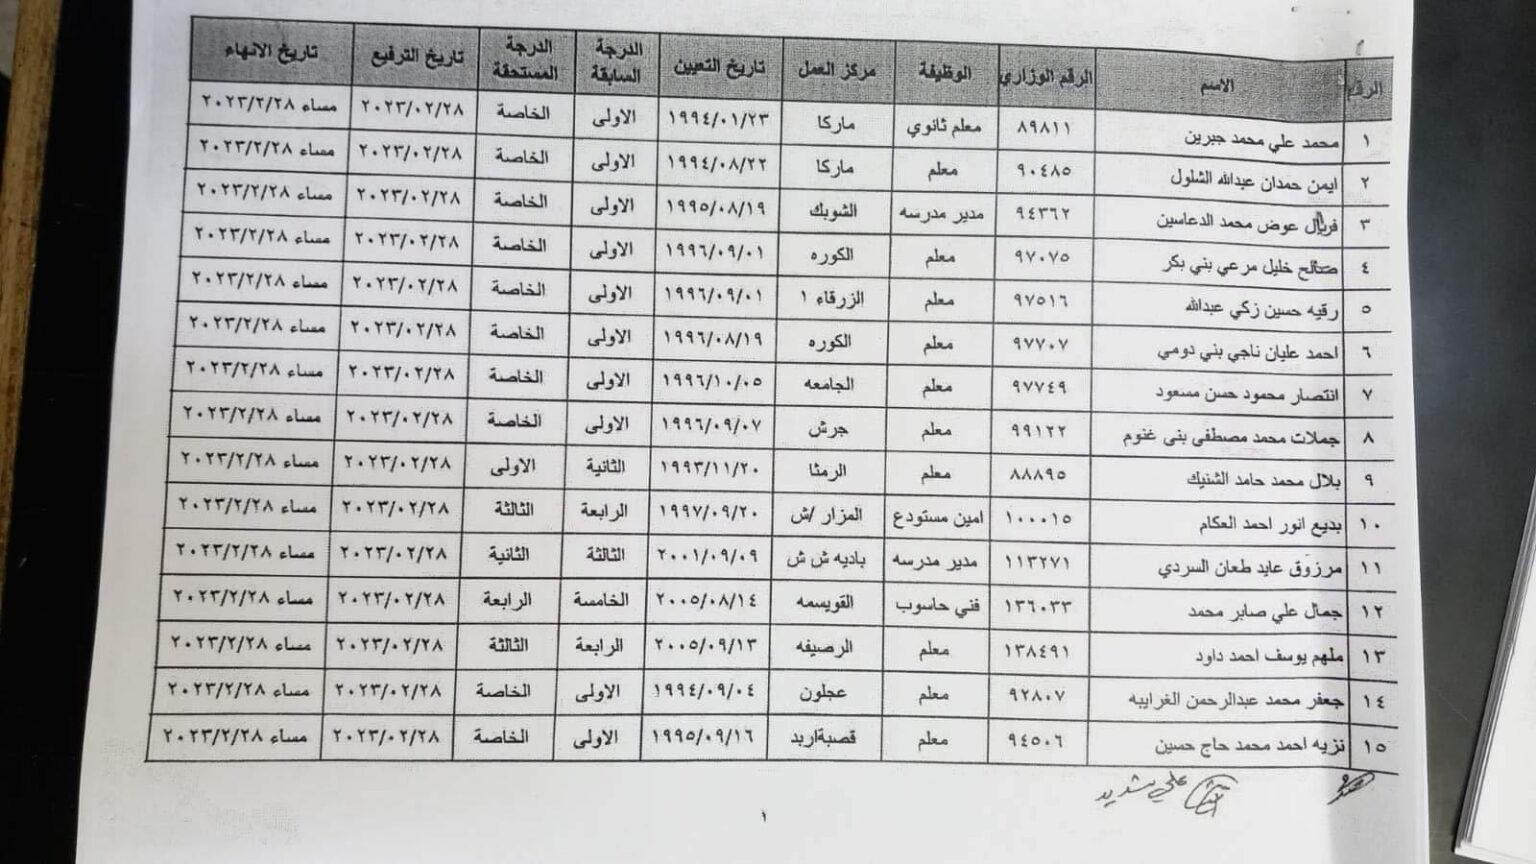 الرقم الاسم الرقم الوزاري الوظيفة مركز العمل تاريخ التعيين الدرجة السابقة الدرجة المستحقة تاريخ الترفيع تاريخ الانهاء
١ محمد علي محمد جبرين ٨٩٨١١ معلم ثانوي ماركا ١٩٩٤/٠١/٢٣ الاولى الخاصة ٢٠٢٣/٠٢/٢٨ مساء ٢٠٢٣/٢/٢٨
٢ ايمن حمدان عبدالله الشلول ٩٠٤٨٥ معلم ماركا ١٩٩٤/٠٨/٢٢ الاولى الخاصة ٢٠٢٣/٠٢/٢٨ مساء ٢٠٢٣/٢/٢٨
٣ فريال عوض محمد الدعاسين ٩٤٣٦٢ مدير مدرسه الشوبك ١٩٩٥/٠٨/١٩ الاولى الخاصة ٢٠٢٣/٠٢/٢٨ مساء ٢٠٢٣/٢/٢٨
٤ صالح خليل مرعي بني بكر ٩٧٠٧٥ معلم الكوره ١٩٩٦/٠٩/٠١ الاولى الخاصة ٢٠٢٣/٠٢/٢٨ مساء ٢٠٢٣/٢/٢٨
٥ رقيه حسين زكي عبدالله ٩٧٥١٦ معلم الزرقاء ١ ١٩٩٦/٠٩/٠١ الاولى الخاصة ٢٠٢٣/٠٢/٢٨ مساء ٢٠٢٣/٢/٢٨
٦ احمد عليان ناجي بني دومي ٩٧٧٠٧ معلم الكوره ١٩٩٦/٠٨/١٩ الاولى الخاصة ٢٠٢٣/٠٢/٢٨ مساء ٢٠٢٣/٢/٢٨
٧ انتصار محمود حسن مسعود ٩٧٧٤٩ معلم الجامعه ١٩٩٦/١٠/٠٥ الاولى الخاصة ٢٠٢٣/٠٢/٢٨ مساء ٢٠٢٣/٢/٢٨
٨ جملات محمد مصطفى بني غنوم ٩٩١٢٢ معلم جرش ١٩٩٦/٠٩/٠٧ الاولى الخاصة ٢٠٢٣/٠٢/٢٨ مساء ٢٠٢٣/٢/٢٨
٩ بلال محمد حامد الشنيك ٨٨٨٩٥ معلم الرمثا ١٩٩٣/١١/٢٠ الثانية الاولى ٢٠٢٣/٠٢/٢٨ مساء ٢٠٢٣/٢/٢٨
١٠ بديع انور احمد العكام ١٠٠٠١٥ امين مستودع المزار /ش ١٩٩٧/٠٩/٢٠ الرابعة الثالثة ٢٠٢٣/٠٢/٢٨ مساء ٢٠٢٣/٢/٢٨
١١ مرزوق عايد طعان السردي ١١٣٢٧١ مدير مدرسه باديه ش ش ٢٠٠١/٠٩/٠٩ الثالثة الثانية ٢٠٢٣/٠٢/٢٨ مساء ٢٠٢٣/٢/٢٨
١٢ جمال علي صابر محمد ١٣٦٠٣٣ فني حاسوب القويسمه ٢٠٠٥/٠٨/١٤ الخامسة الرابعة ٢٠٢٣/٠٢/٢٨ مساء ٢٠٢٣/٢/٢٨
١٣ ملهم يوسف احمد داود ١٣٨٤٩١ معلم الرصيفه ٢٠٠٥/٠٩/١٣ الرابعة الثالثة ٢٠٢٣/٠٢/٢٨ مساء ٢٠٢٣/٢/٢٨
١٤ جعفر محمد عبدالرحمن الغرايبه ٩٢٨٠٧ معلم عجلون ١٩٩٤/٠٩/٠٤ الاولى الخاصة ٢٠٢٣/٠٢/٢٨ مساء ٢٠٢٣/٢/٢٨
١٥ نزيه احمد محمد حاج حسين ٩٤٥٠٦ معلم قصبةاربد ١٩٩٥/٠٩/١٦ الاولى الخاصة ٢٠٢٣/٠٢/٢٨ مساء ٢٠٢٣/٢/٢٨
١